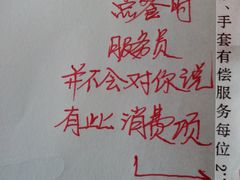 点餐时
服务员
并不会对你说
有此消费项
、手套有偿服务每位 2